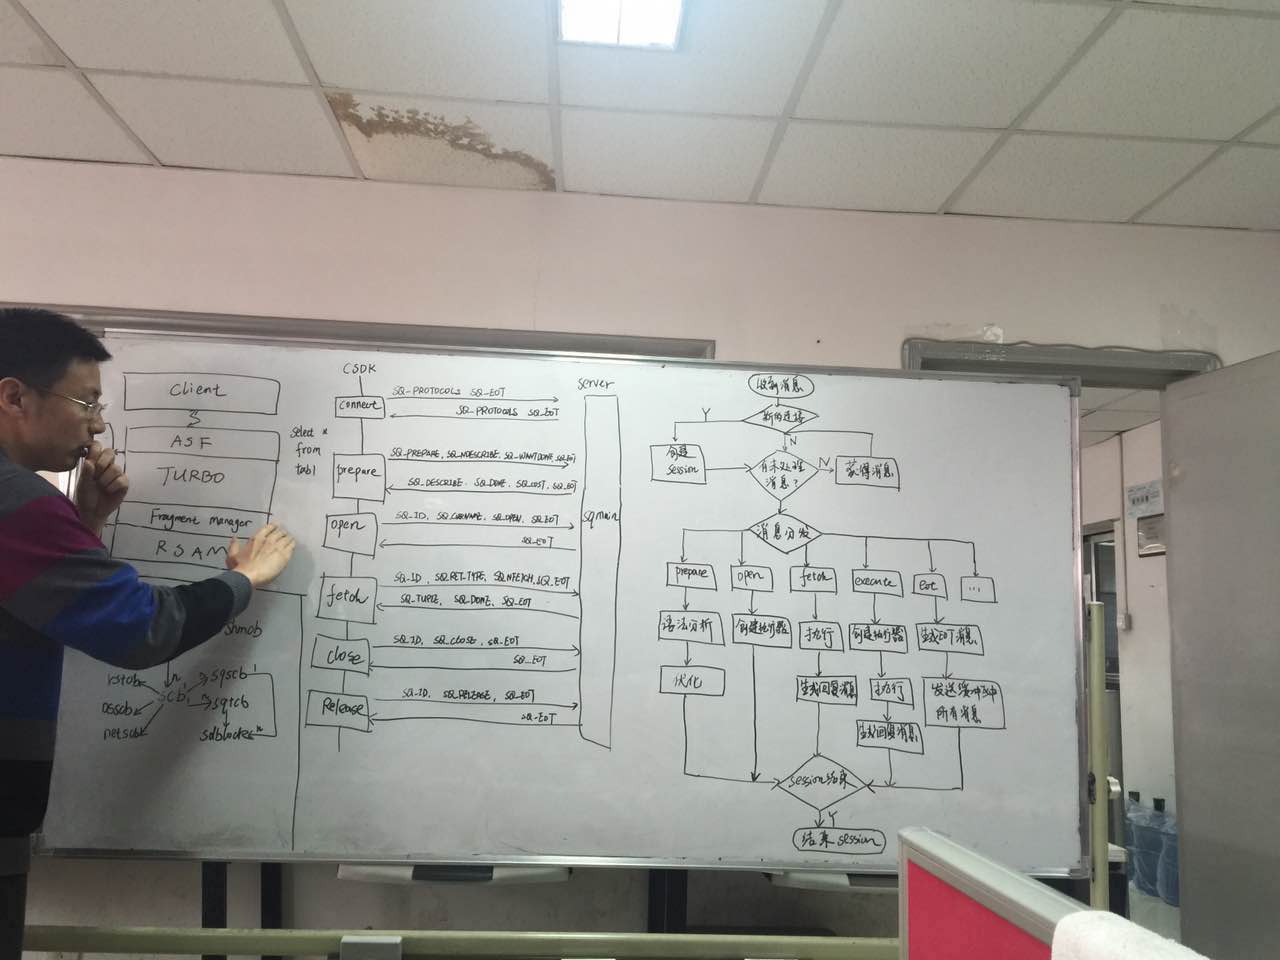 Client
ASF
TURBO
Fragment manager
RSAM
shmob
rstcb
scb
sqscb
sqtcb
osscb
netscb
sdblock*
CSDK
select *
from
tab1
connect
SQ_PROTOCOLS SQ_EOT
SQ_PROTOCOLS SQ_EOT
prepare
SQ_PREPARE, SQ_NDESCRIBE, SQ_WANTDONE, SQ_EOT
SQ_DESCRIBE, SQ_DONE, SQ_COST, SQ_EOT
open
SQ_ID, SQ_CURNAME, SQ_OPEN, SQ_EOT
SQ_EOT
fetch
SQ_ID, SQ_RET_TYPE, SQ_NFETCH, SQ_EOT
SQ_TUPLE, SQ_DONE, SQ_EOT
close
SQ_ID, SQ_CLOSE, SQ_EOT
SQ_EOT
Release
SQ_ID, SQ_RELEASE, SQ_EOT
SQ_EOT
server
sqmain
收到消息
新的连接
Y
N
创建
session
有未处理
消息?
N
获得消息
消息分发
prepare
open
fetch
execute
eot
...
语法分析
创建执行器
执行
创建执行器
生成EOT消息
优化
生成回复消息
执行
发送缓冲中
所有消息
生成回复消息
session结束
Y
结束 session